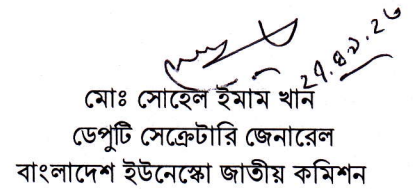 মোঃ সোহেল ইমাম খান
ডেপুটি সেক্রেটারি জেনারেল
বাংলাদেশ ইউনেস্কো জাতীয় কমিশন